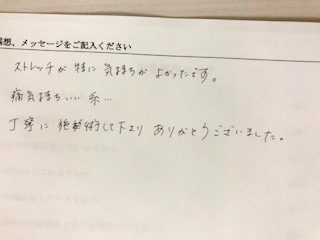 感想、メッセージをご記入ください
ストレッチが特に気持ちがよかったです。
痛気持ちいい系…
丁寧に施術して下さりありがとうございました。